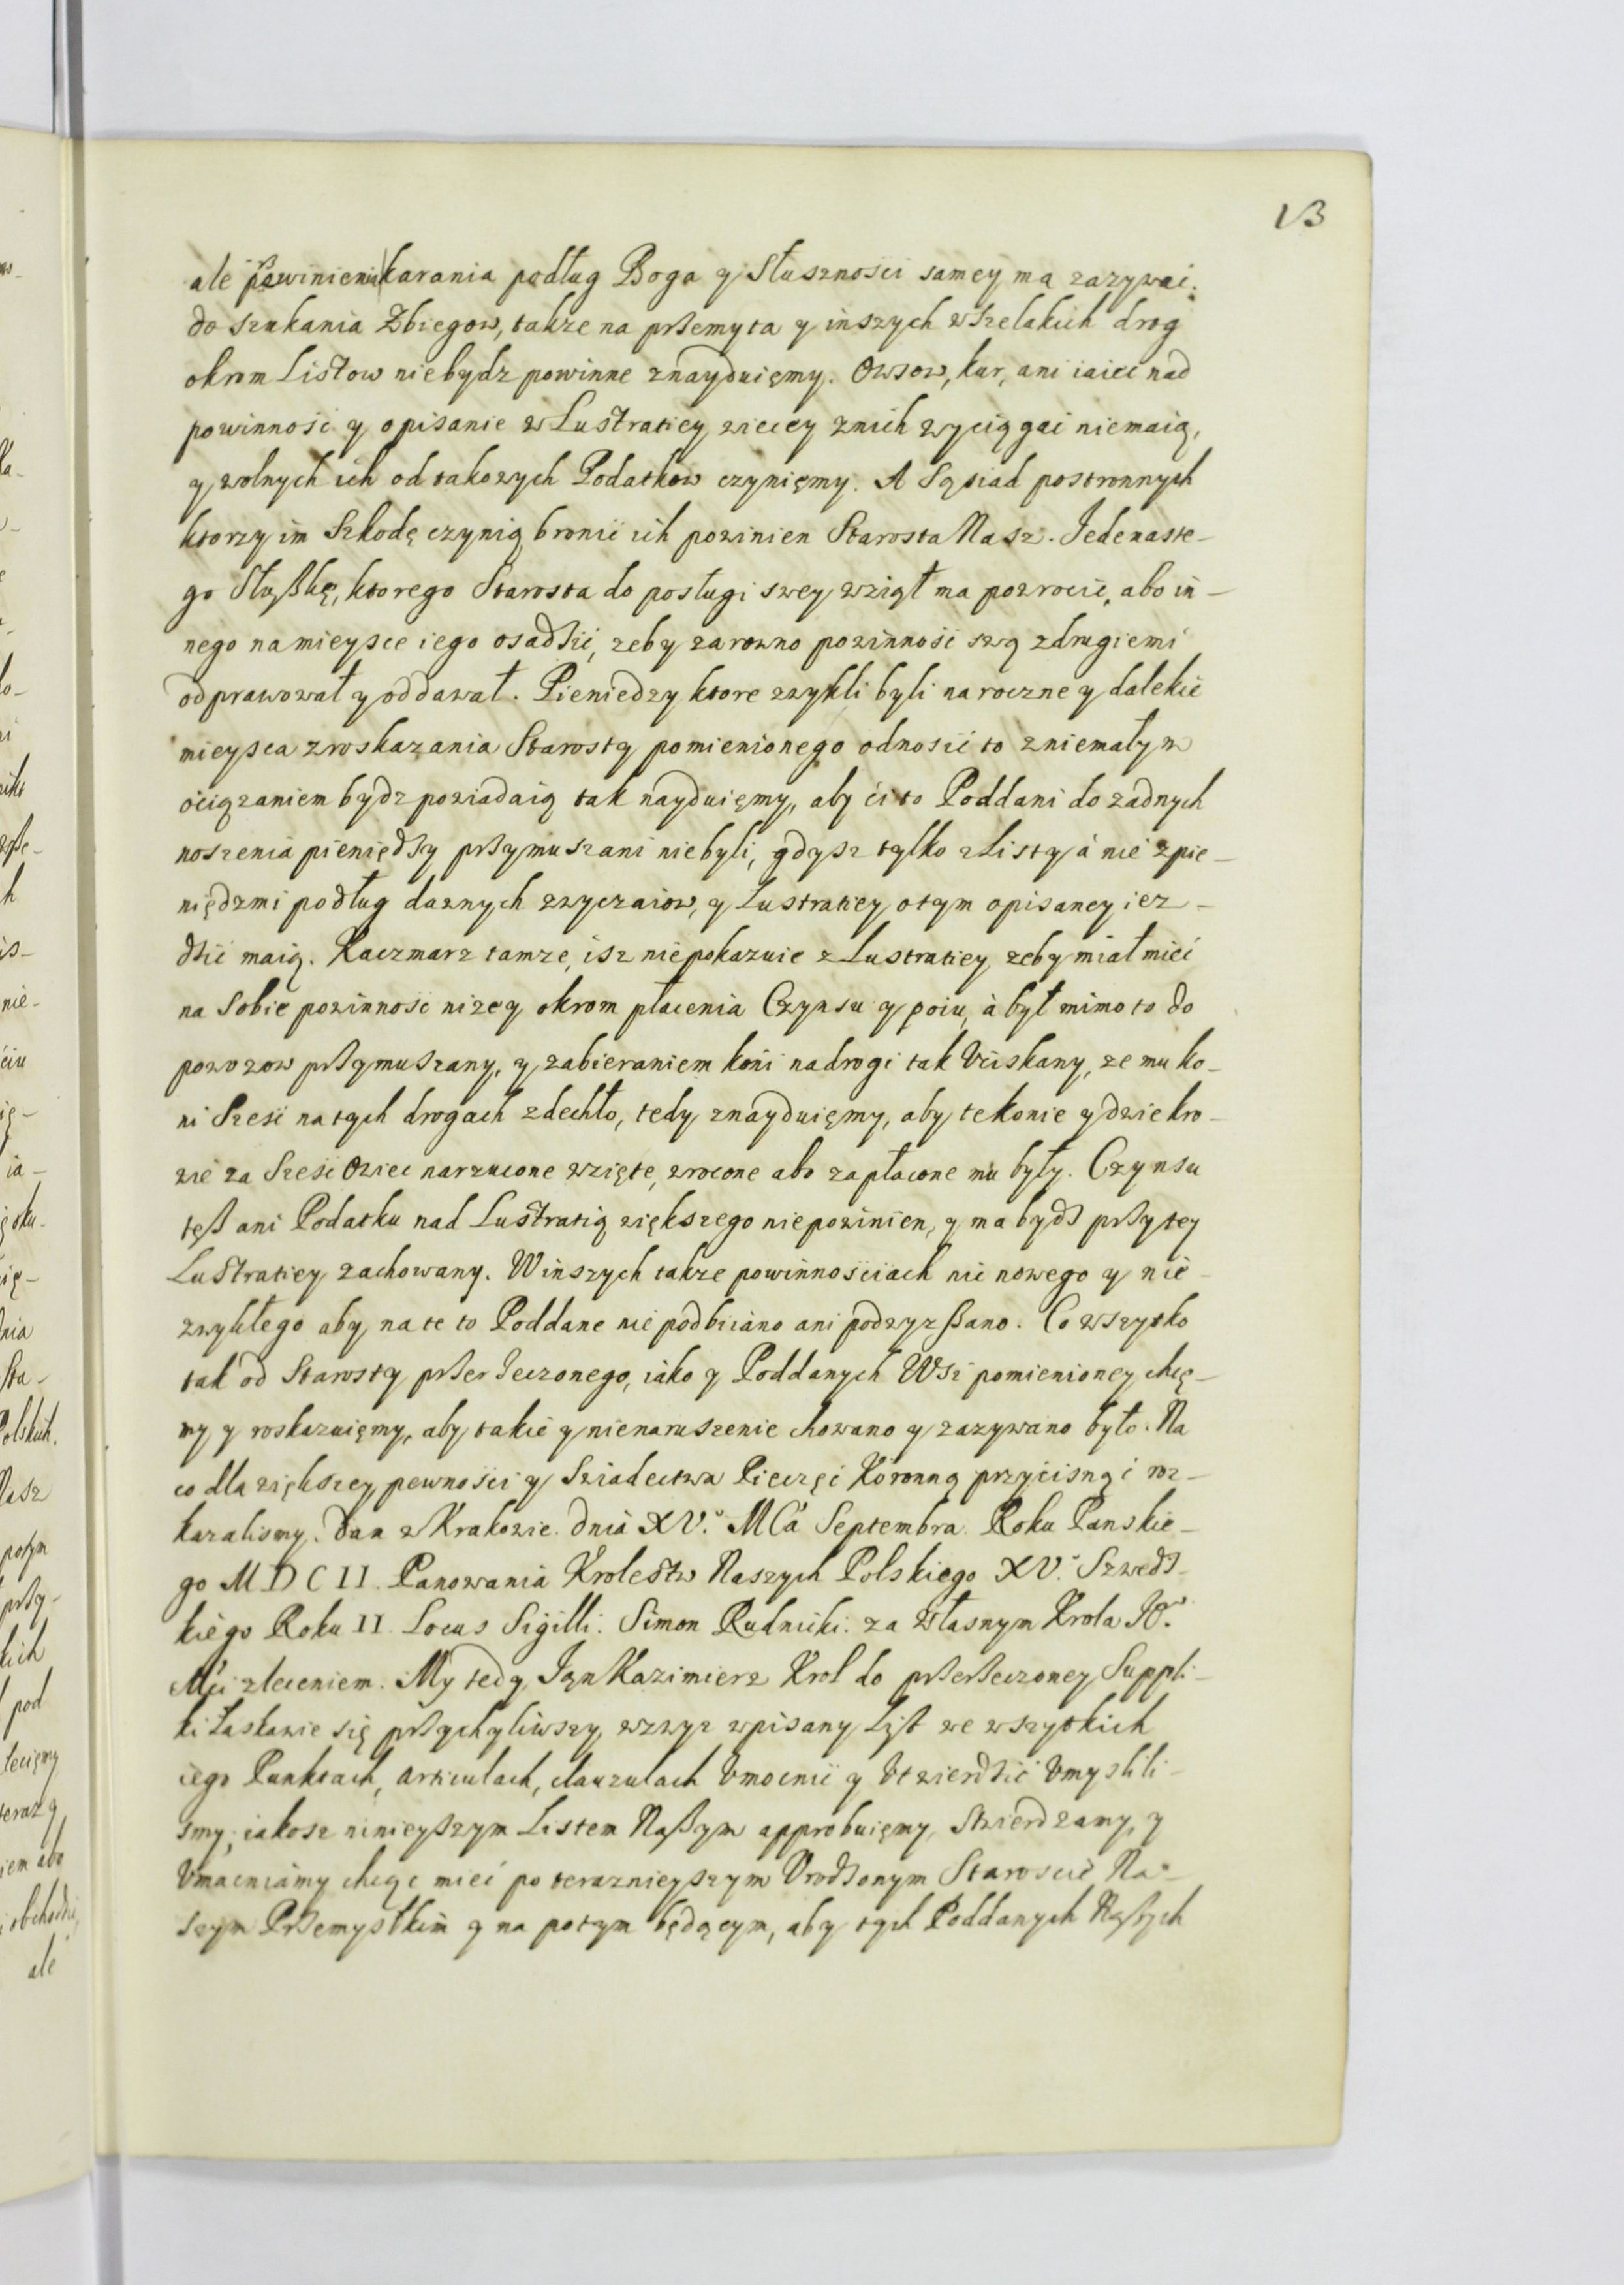 13
ale powinien karania podług Boga y Słusznosći samey ma zazywać.
do szukania Zbiegow, takze na przemyta y inszych wszelakich drog
okrom Listow niebydz powinne znayduięmy. Owsow, kur, ani iaiec nad
powinność y opisanie w Lustratiey wiecey znich wyciągać niemaią,
y wolnych ich od takowych Podatkow czynięmy. A Sąsiad postronnych
ktorzy im Szkodę czynią bronić ich powinien Starosta Nasz. Jedenaste-
go Służkę, ktorego Starosta do posługi swey wziął ma powrocić, abo in-
nego na mieysce iego osadzić, zeby zarowno powinność swą zdrugiemi
odprawował y oddawał. Pieniedzy ktore zwykli byli na roczne y dalekie
mieysca z roskazania Starosty pomienionego odnosić to zniemałym
ociązaniem bydz powiadaią tak nayduięmy, aby ci to Poddani do zadnych
noszenia pieniędzy przymuszani niebyli, gdysz tylko z Listy à nie zpie-
niędzmi podług dawnych zwyczaiow, y Lustratiey otym opisaney iez-
dzić maią. Kaczmarz tamze, isz niepokazuie z Lustratiey zeby miał mieć
na Sobie powinność niżey okrom płacenia Czynsu y poiu, à był mimo to do
powozow przymuszany, y zabieraniem koni nadrogi tak Vciskany, ze mu ko-
ni Sześć na tych drogach zdechło, tedy znayduięmy, aby te konie y dzie kro-
wie za Sześć Owiec narzucone wzięte, wrocone abo zapłacone mu były. Czynsu
tesz ani Podatku nad Lustratią większego niepowinien, y ma bydz przy tey
Lustratiey zachowany. W inszych takze powinnosciach nic nowego y nie-
zwykłego aby na te to Poddane nie podbiiano ani podwyzszano. Co wszytko
tak od Starosty przerzeczonego, iako y Poddanych Wsi pomienioney chcę-
my y roskazuięmy, aby takie y nienaruszenie chowano y zazywano było. Na
co dla większey pewności y Swiadectwa Pieczęć Koronną przycisnąć roz-
kazalismy. Dan w Krakowie dnia XV. MCa Septembra Roku Panskie-
go MDCII. Panowania Krolestw Naszych Polskiego XV. Szwedz-
kiego Roku II. Locus Sigilli. Simon Rudnicki. za Własnym Krola Jº.
Mći zleceniem. My tedy Jan Kazimierz Krol do przerzeczoney Suppli-
ki Łaskawie się przychyliwszy, wzwyz wpisany List we wszytkich
iego Punktach, articulach, clauzulach Vmocnić y Vtwierdzić Vmyslili-
smy, iakosz ninieyszym Listem Naszym approbuięmy, Stwierdzamy, y
Vmacniamy chcąc mieć po terazniejszym Vrodzonym Staroscie Na-
szym Przemyskim y na potym będącym, aby tych Poddanych Naszych